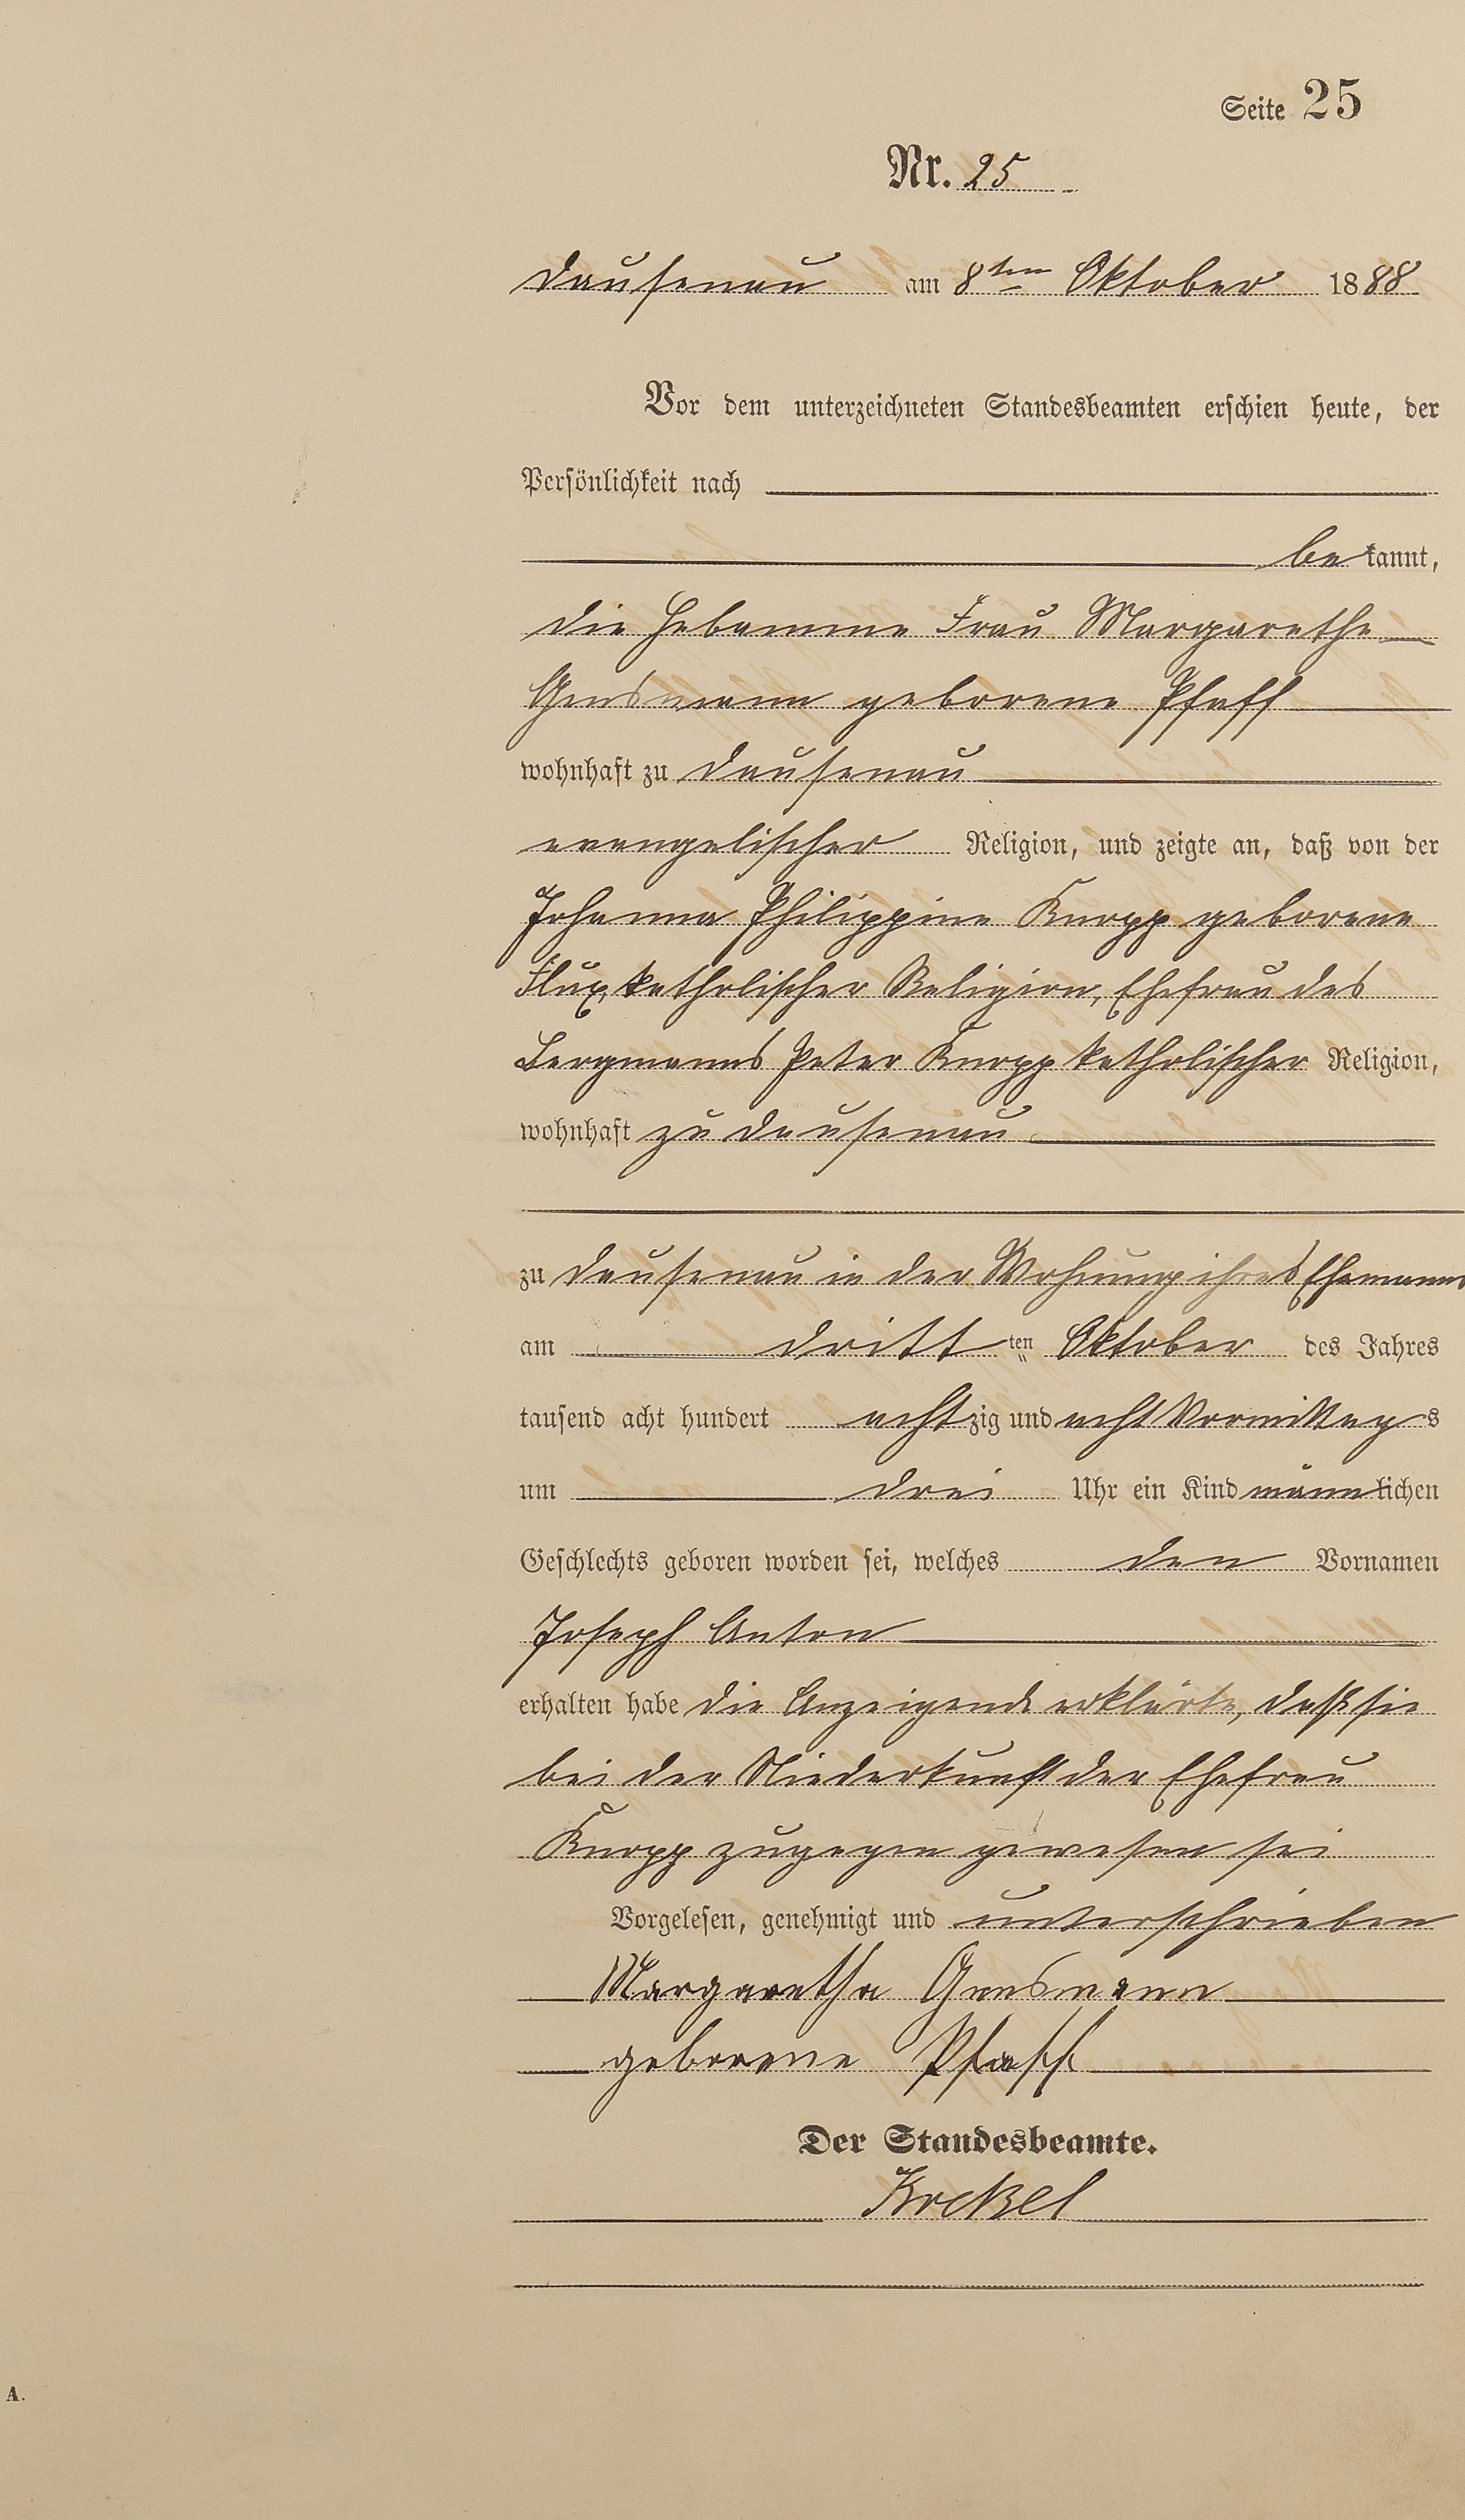 Seite 25
Nr. 25
Dausenau am 8ten Oktober 1888
Vor dem unterzeichneten Standesbeamten erschien heute, der
Persönlichkeit nach
be kannt,
die Hebamme Frau Margarethe
geborene Pfaff
wohnhaft zu Dausenau
evangelischer Religion, und zeigte an, daß von der
Johanna Philippine Knopp geborene
Flux, katholischer Religion, Ehefrau des
Bergmanns Peter Knopp katholischer Religion,
wohnhaft zu Dausenau
zu Dausenau in der Wohnung ihres Ehemanns
am dritt ten Oktober des Jahres
tausend acht hundert acht zig und acht Vormittag s
um drei Uhr ein Kind männ lichen
Geschlechts geboren worden sei, welches den Vornamen
Joseph Anton
erhalten habe die Anzeigende erklärte, daß sie
bei der Niederkunft der Ehefrau
Knopp zugegen gewesen sei
Vorgelesen, genehmigt und unterschrieben
Margaretha
geborene Pfaff
Der Standesbeamte.
A.